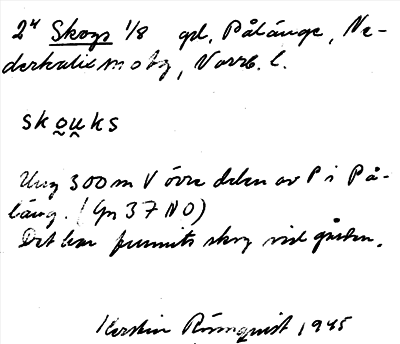 2 Skogs 1/8 gd, Pålänge, Ne-
derkalix m o tg, Norrb. l.
skouks
Ung 300 m V övre delen av P i På-
läng. (Gn 37 NO)
Det har funnits skog vid gården.
Kerstin Rönnquist 1945